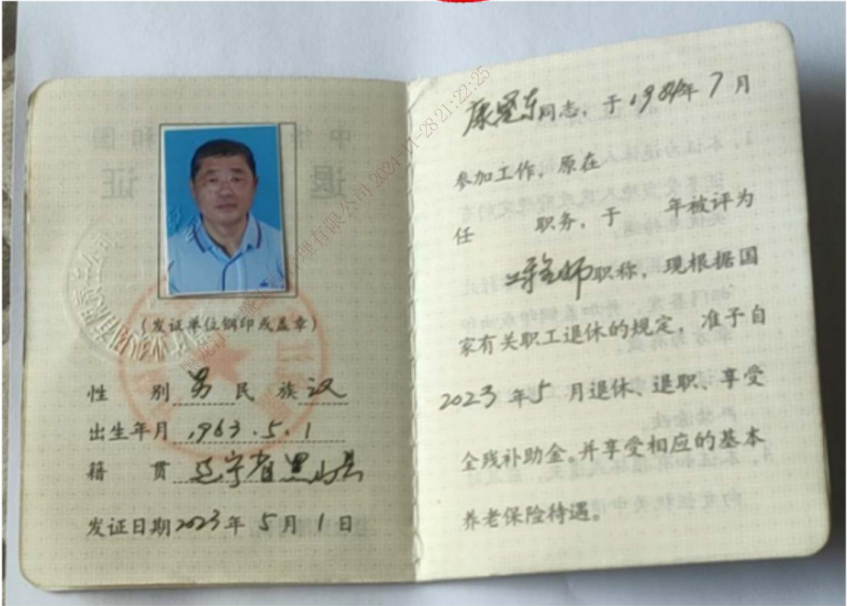 (发证单位钢印或盖章)
性 别 男 民 族 汉
出生年月 1963.5.1
籍 贯 辽宁省黑山县
发证日期 2023 年 5 月 1 日
康 东 同志，于 1984 年 7 月
参加工作，原在
任 职务，于 年被评为
工程师 职称，现根据国
家有关职工退休的规定，准予自
2023 年 5 月退休、退职、享受
全残补助金。并享受相应的基本
养老保险待遇。
2024-11-28 21:22:25